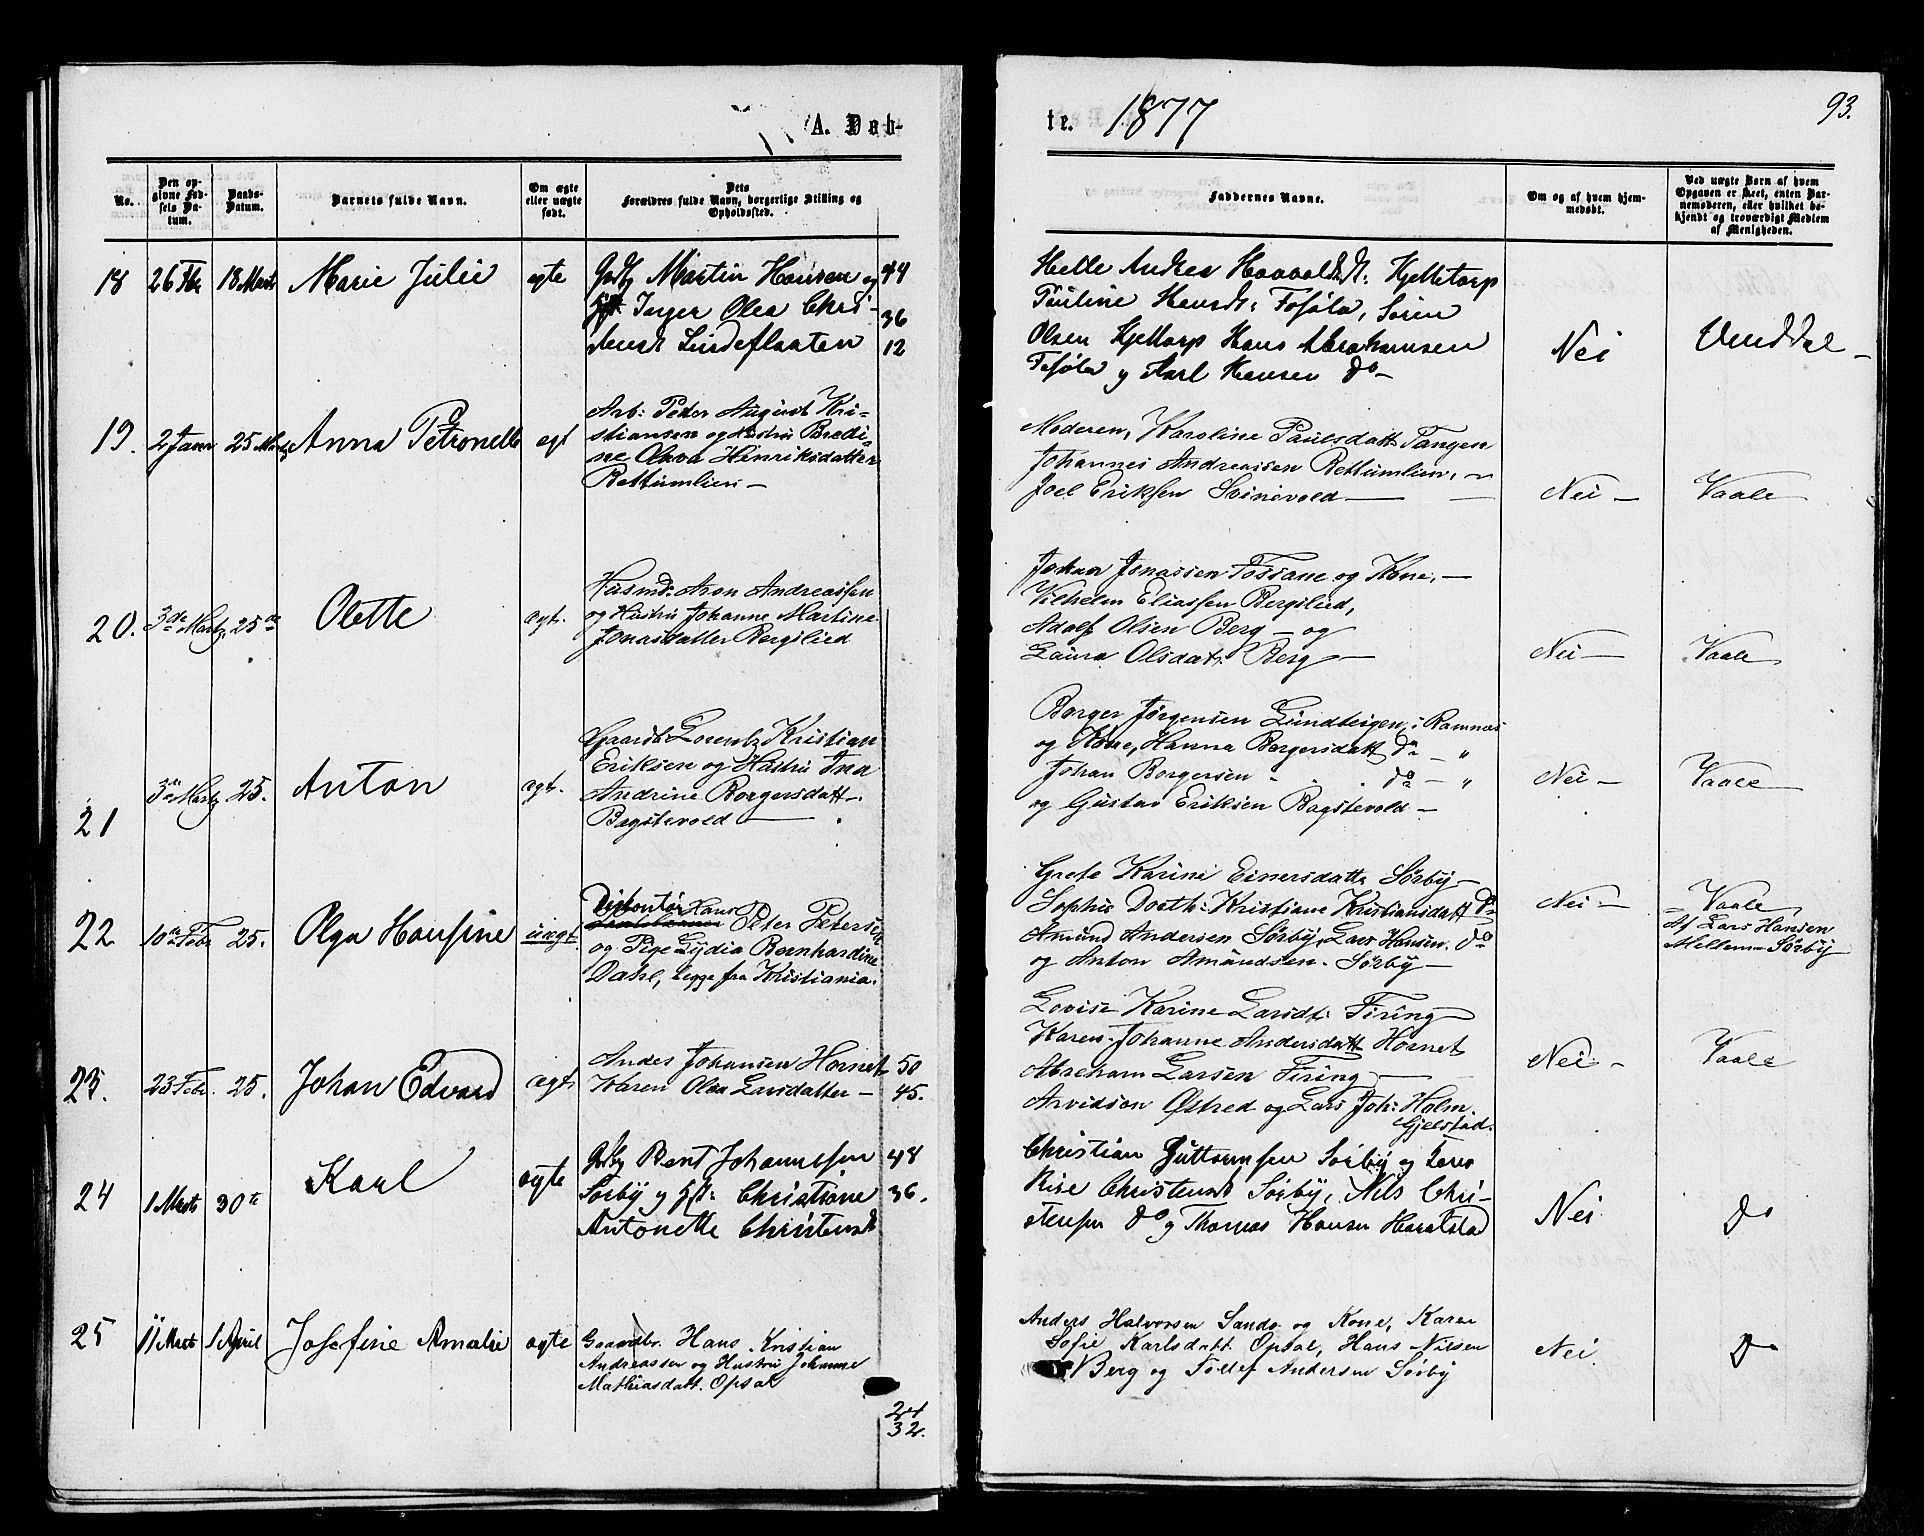 A. Døb-
te. 1877
93.
No.
Den op-
givne Fød-
sels Da-
tum.
Daabs-
Datum.
Barnets fulde Navn.
Om ægte
eller uægte
født.
Dets
Forældres fulde Navn, borgerlige Stilling og
Opholdssted.
Faddernes Navne.
Om og af hvem hjem-
medøbt.
Ved uægte Børn af hvem
Opgaven er skeet, enten Bar-
nemoderen, eller hvilket be-
kjendt og troværdigt Medlem
af Menigheden.
18 26 Fbr 18 Marts Marie Julie ægte
Martin Hansen og 44
Inger Olea Chri- 36
stensdt Lindeflaaten 12
Helle Andrea Haavaldsdt: Hjelletorp
Pauline Hansdt: Fosøla, Søren
Olsen Hjeltorp Hans Abrahamsen
Fosøla og Karl Hansen do -
Nei
19. 2 Janr 25 Marts Anna Petronelle ægt
Arb: Peder August Kri-
stiansen og Hustru Bredi-
ne Olava Hinriksdatter
Bettumlien -
Moderen, Karoline Paulsdatt. Tangen
Johannes Andreassen Bettumlien, -
Joel Eriksen Svinevold -
Nei -
Vaale
20. 3de Martz 25de Olette ægt.
Husmd: Aron Andreassen
og Hustru Johanne Martine
Jonasdatter Bergslied
Johan Jonassen Fossane og Kone, -
Vilhelm Eliassen Bergslied,
Adolf Olsen Berg - og
Laura Olsdatr Berg -
Nei -
Vaale
21 3de Martz 25. Anton ægt.
Gaardb: Lorentz Kristian
Eriksen og Hustru Ina
Andrine Borgersdatt.
Bagstevold -
Borger Jørgensen Lundteigen i Ramnes
og Kone, Hanna Borgersdatt do - "
Johan Borgersen - . . do - "
og Gustav Eriksen Bagstevold -
Nei -
Vaale
22 10de Febr 25. Olga Hansine uægt.
Hans
Peter Petersen
og Pige Lydia Bernhardine
Dahl, begge fra Kristiania.
Grete Karine Einersdatt. Sørby -
Sophie Doeth: Kristiane Kristiansdatt do
Amund Andersen Sørby, Lars Hansen. do
og Anton Amundsen. Sørby -
Nei -
Vaale
Af Lars Hansen
Mellem-Sørby
23. 23 Febr. 25. Johan Edvard ægt
Andes Johansen Hornet 50
Karen Olea Larsdatter - 45.
Lovise Karine Larsdt. Firing
Karen Johanne Andersdatt. Hornet
Abraham Larsen Firing -
Arvidson Østred og Lars Joh: Holm.
Gjelstad.
Nei -
Vaale
24 1 Marts 30te Karl ægte
Bent Johannesen 48
Sørby og Christiane 36.
Antonette Christensdt
Christian Guttormsen Sørby og Lena
Rise Christensdt Sørby, Nils Chri-
stensen do og Thomas Hansen Haralstad
Nei
do
25 11 Marts 1 April Josefine Amalie ægte
Gaardbr. Hans Kristian
Andreassen og Hustru Johanne
Mathiasdatt. Opsal
Anders Halvorsen Sando og Kone, Karen
Sofie Karlsdatt Opsal, Hans Nilsen
Berg og Tollef Andersen Sørby
Nei.
Do
24
32.